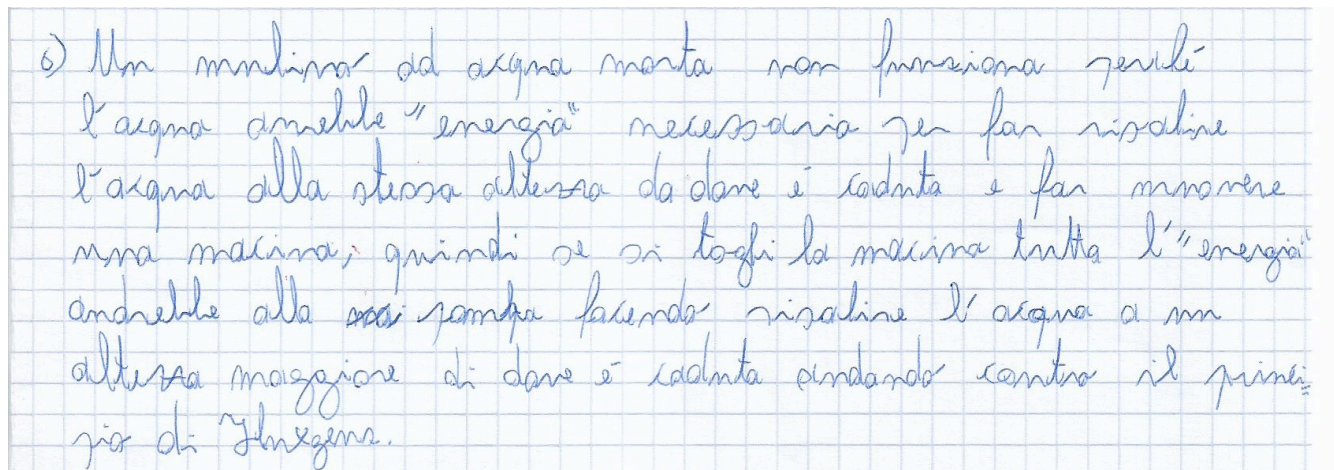 6) Un mulino ad acqua morta non funziona perché
l'acqua avrebbe "energia" necessaria per far risalire
l'acqua alla stessa altezza da dove è caduta e far muovere
una macina, quindi se si togli la macina tutta l'"energia"
andrebbe alla pompa facendo risalire l'acqua a un
altezza maggiore di dove è caduta andando contro il princi=
pio di Huxgens.